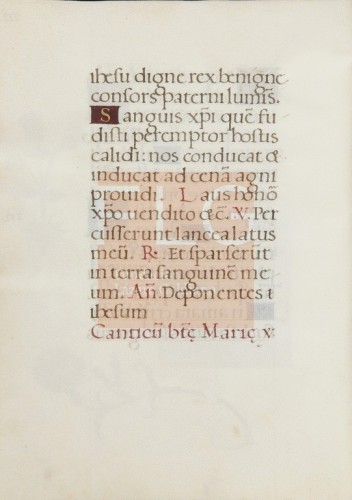 ihesu digne rex benigne
consors paterni luminis.
Sanguis xp̄i quē fu
disti peremptor hostis
calidi: nos conducat &
inducat ad cenā agni
prouidi. Laus honō
xp̄o uendito & c̄. V. Per
cusserunt lancea latus
meū. R. Et sparserūt
in terra sanguinē me
um. Añ. Deponentes i
ihesum
Canticū btę Marię v